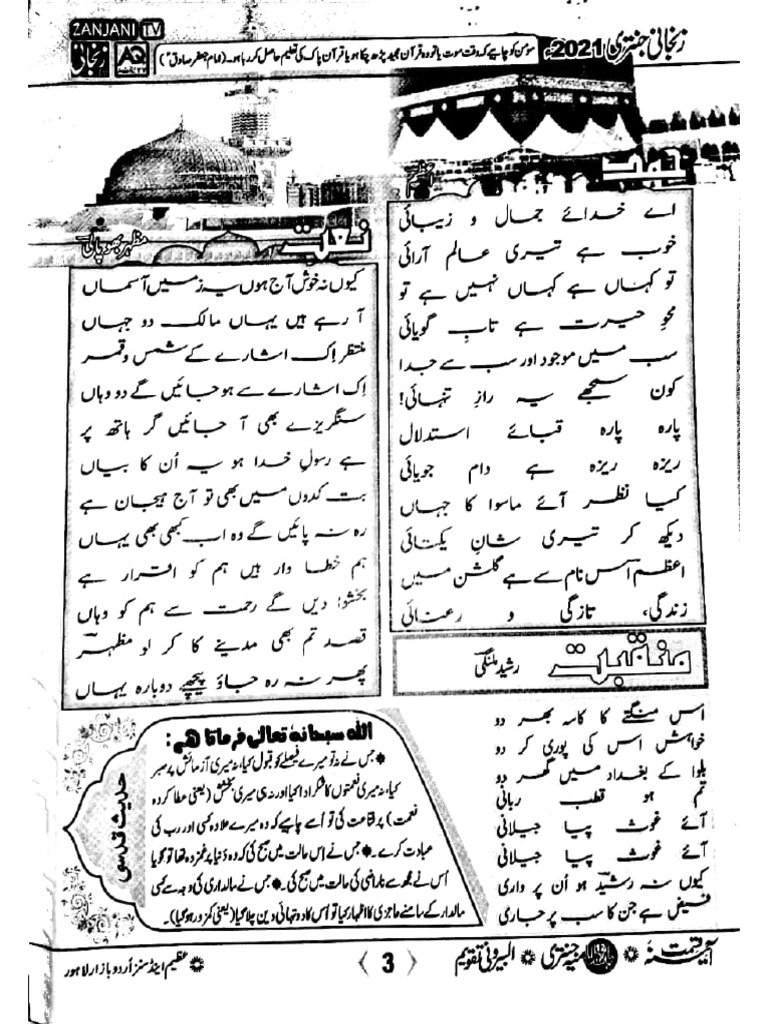 زنجانی جنتری 2021ء
مومن کو چاہیے کہ وقت موت یا تو وہ قرآن مجید پڑھ چکا ہو یا قرآن پاک کی تعلیم حاصل کر رہا ہو۔ (امام جعفر صادقؑ)
ZANJANI TV
زنجانی
AQ
حمد
اے خدائے جمال و زیبائی
خوب ہے تیری عالم آرائی
تو کہاں ہے کہاں نہیں ہے تو
محوِ حیرت ہے تابِ گویائی
سب میں موجود اور سب سے جدا
کون سمجھے یہ رازِ تنہائی!
پارہ پارہ قبائے استدلال
ریزہ ریزہ ہے دام جویائی
کیا نظر آئے ماسوا کا جہاں
دیکھ کر تیری شانِ یکتائی
اعظمؔ اس نام سے ہے گلشن میں
زندگی، تازگی و رعنائی
نعت
مظہر بھوپالی
کیوں نہ خوش آج ہوں یہ زمیں آسماں
آ رہے ہیں یہاں مالک دو جہاں
منتظر اِک اشارے کے شمس و قمر
اِک اشارے سے ہو جائیں گے دو وہاں
سنگریزے بھی آ جائیں گر ہاتھ پر
ہے رسولِ خدا ہو یہ اُن کا بیاں
بت کدوں میں بھی تو آج ہیجان ہے
رہ نہ پائیں گے وہ اب کبھی بھی یہاں
ہم خطا وار ہیں ہم کو اقرار ہے
بخشوا دیں گے رحمت سے ہم کو وہاں
قصد تم بھی مدینے کا کر لو مظہرؔ
پھر نہ رہ جاؤ پیچھے دوبارہ یہاں
منقبت
رشید ملنگی
اس منگتے کا کاسہ بھر دو
خواہش اس کی پوری کر دو
بلوا کے بغداد میں گھر دو
تم ہو قطب ربانی
آئے غوث پیا جیلانی
آئے غوث پیا جیلانی
کیوں نہ رشیدؔ ہو اُن پر واری
فیض ہے جن کا سب پر جاری
حدیث قدسی
اللہ سبحانہٗ تعالیٰ فرماتا ھے:
جس نے نہ تو میرے فیصلے کو قبول کیا، نہ میری آزمائش پر صبر
کیا، نہ میری نعمتوں کا شکر ادا کیا اور نہ ہی میری بخشش (یعنی عطا کردہ
نعمت) پر قناعت کی تو اُسے چاہیے کہ وہ میرے علاوہ کسی اور رب کی
عبادت کرے۔ * جس نے اس حالت میں صبح کی کہ وہ دُنیا پر غمزدہ تھا تو گویا
اُس نے مجھ سے ناراضی کی حالت میں صبح کی۔ * جس نے مالداری کی وجہ سے کسی
مالدار کے سامنے عاجزی کا اظہار کیا تو اُس کا دو تہائی دین چلا گیا (یعنی کمزور ہو گیا)۔
آئینہ قسمت * جنتری * البیرونی تقویم
〈 3 〉
* عظیم اینڈ سنز اُردو بازار لاہور